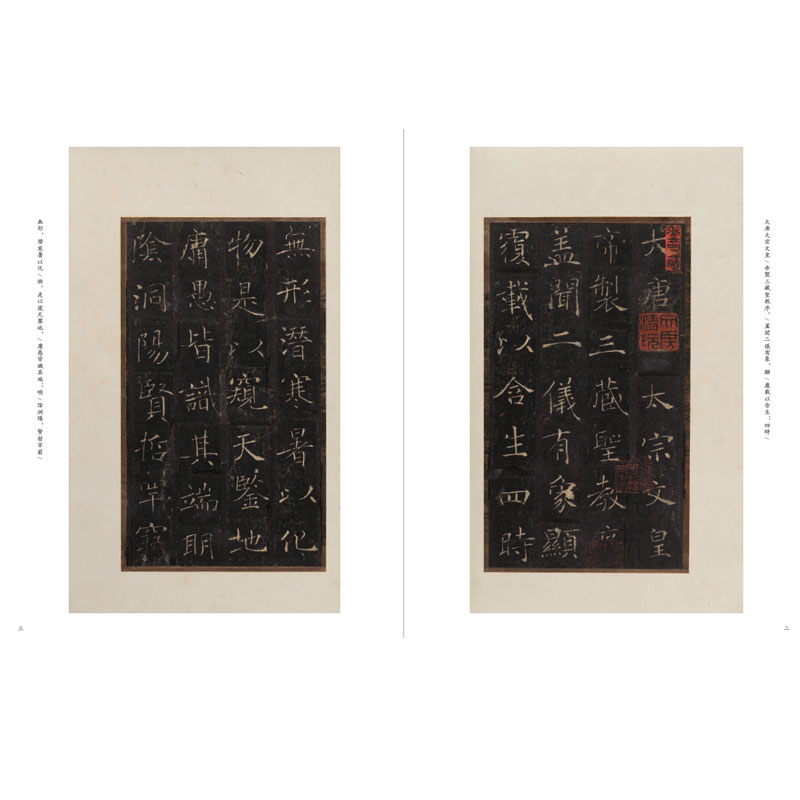 大唐太宗文皇/帝製三藏聖教序。/蓋聞二儀有象,顯/覆載以含生;四時/
大唐太宗文皇
帝製三蔵聖教序
盖聞二儀有象顯
覆載以含生四時
二
無形潛寒暑以化
物是以窺天鑒地
庸愚皆識其端明
陰洞陽賢哲罕窮
無形,潛寒暑以化/物。是以窺天鑒地,/庸愚皆識其端;明/陰洞陽,賢哲罕窮/
三